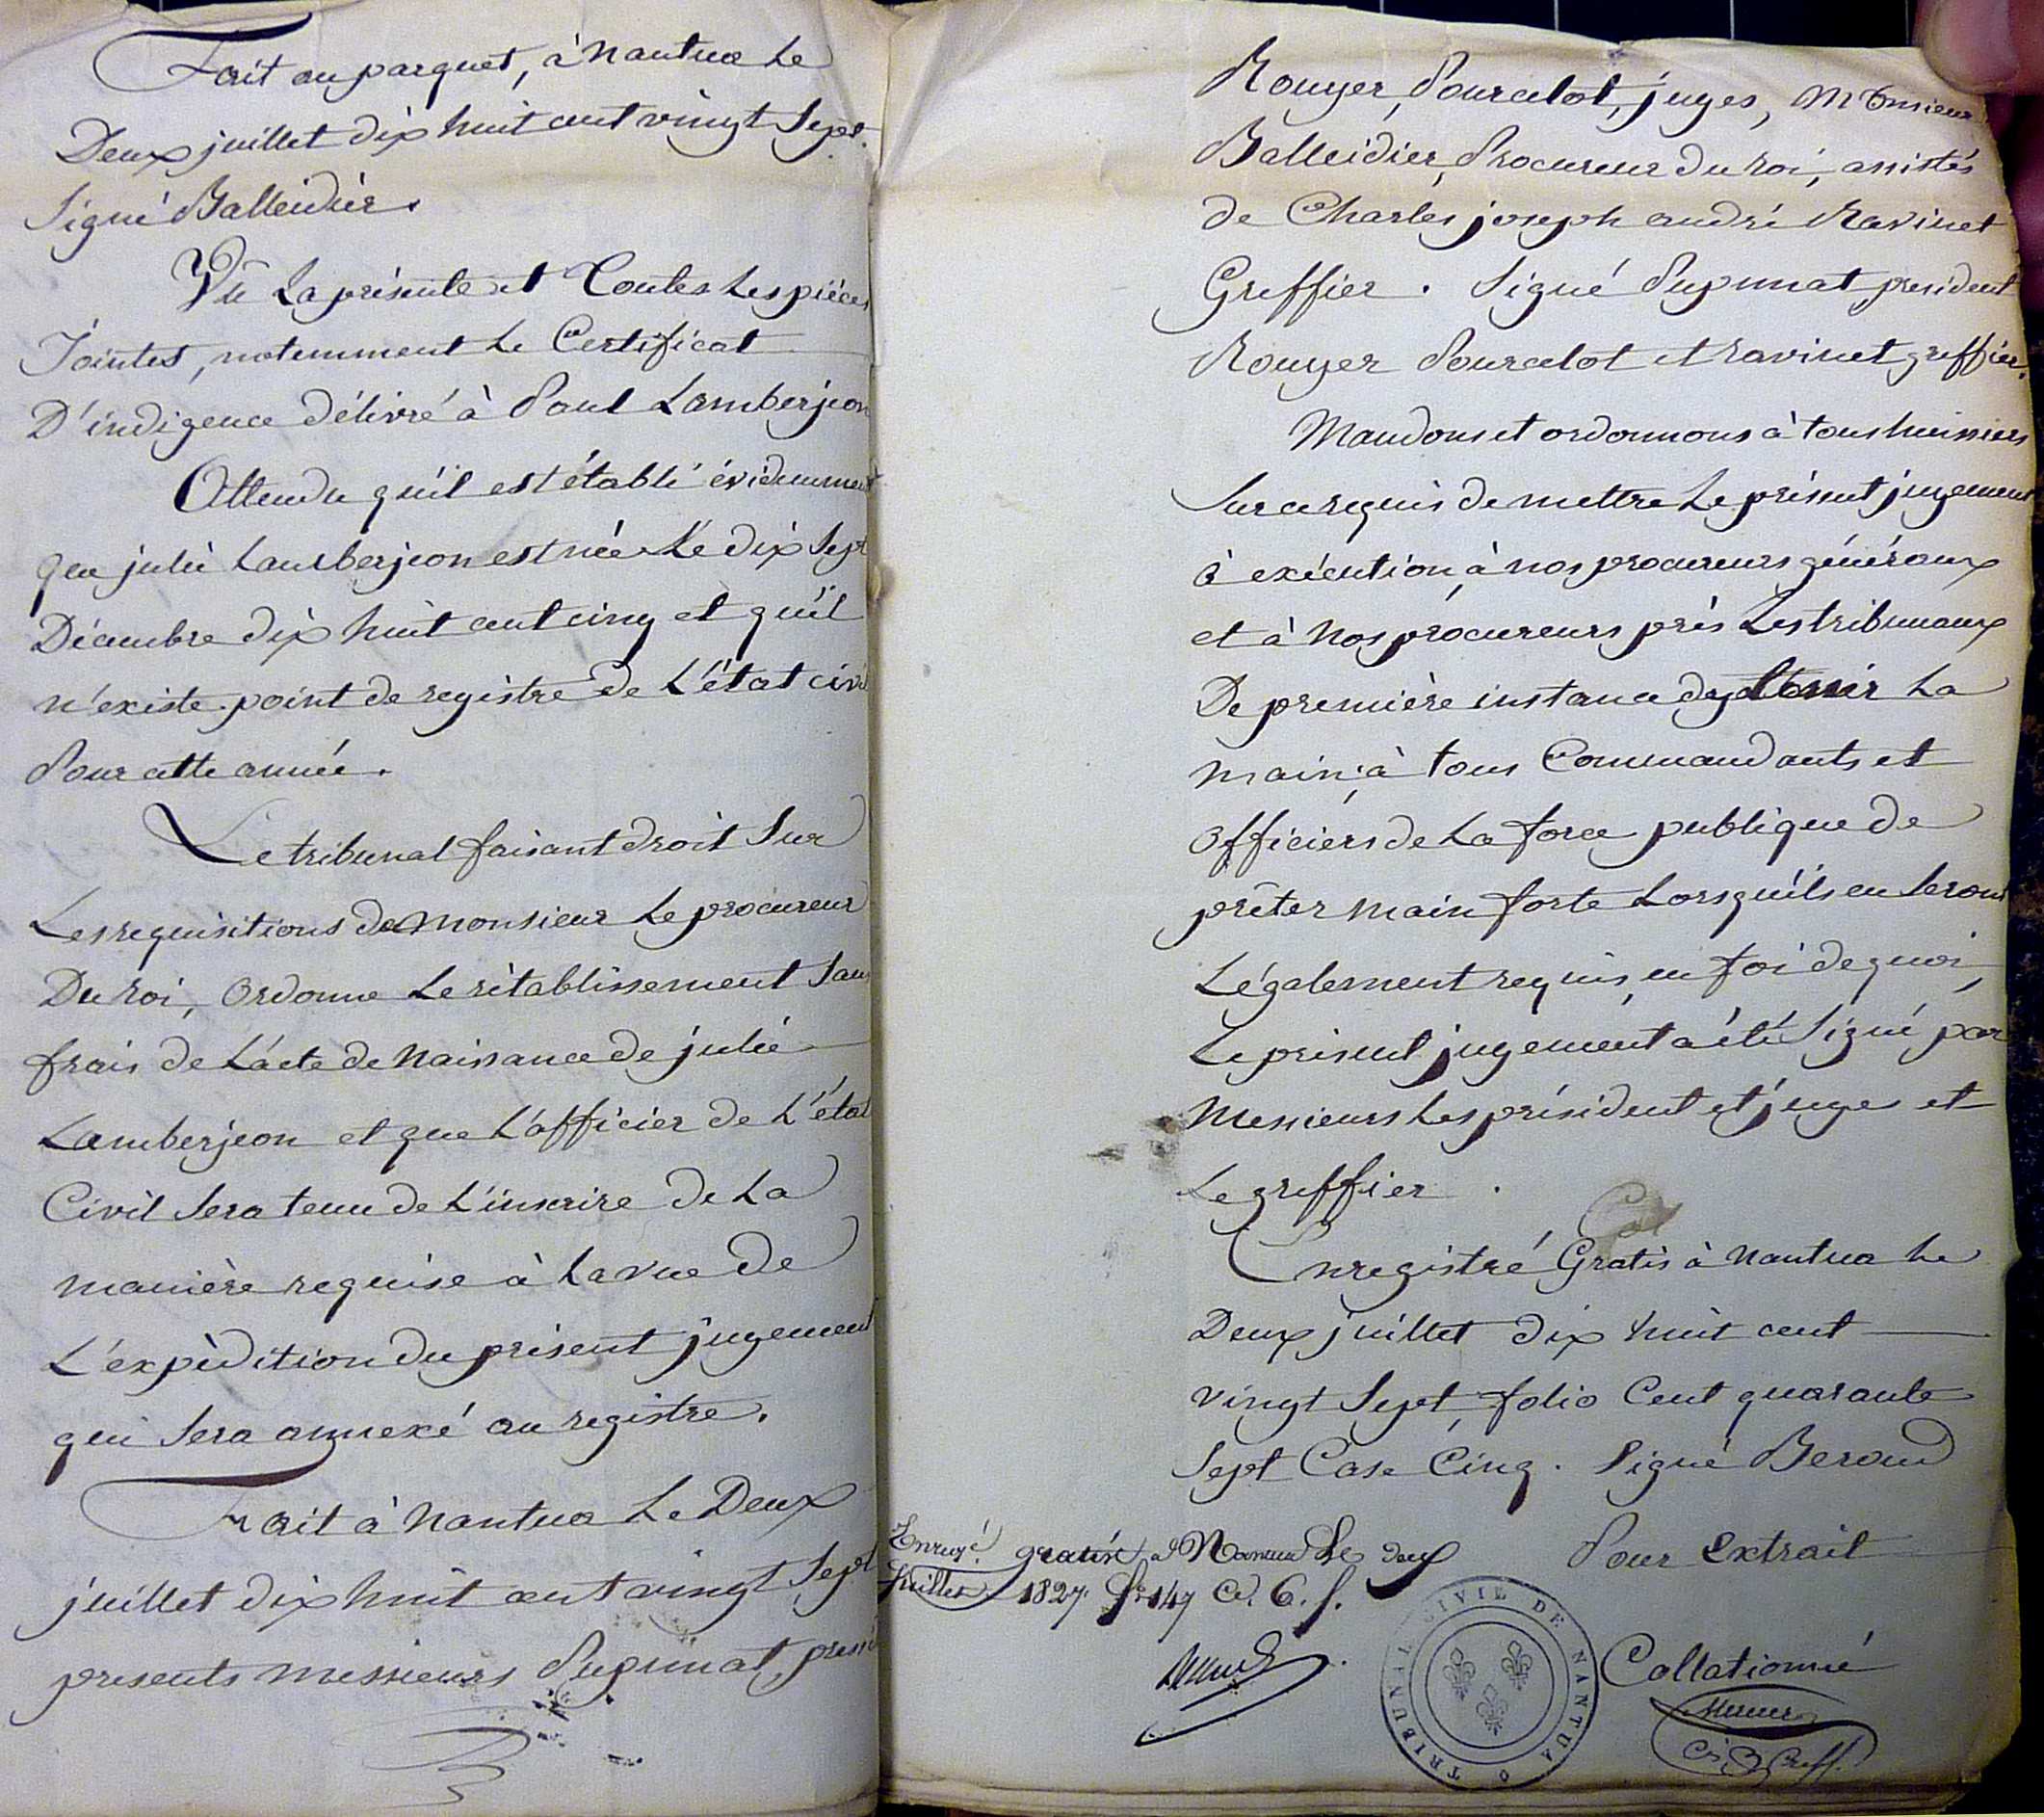 Fait au parquet, à Nantua le
Deux juillet dix huit cent vingt Sept.
Signé Balleidier.
Vu La présente et Toutes Les pièces
Jointes, notemment Le Certificat
D'indigence délivré à Paul Lamberjeon
Attendu qu'il est établi évidemment
que julie Lamberjeon est née Le dix Sept
Décembre dix huit cent cinq et qu'il
n'existe point de registre de L'état civil
Pour cette année.
Le tribunal faisant droit Sur
Les requisitions de Monsieur Le procureur
Du Roi, Ordonne Le rétablissement Sans
frais de L'acte de Naissance de julie
Lamberjeon et que L'officier de L'état
Civil Sera tenu de L'inscrire de La
manière requise à La vue de
L'expédition du présent jugement
qui Sera annexé au registre.
Fait à Nantua Le Deux
juillet dix huit cent vingt Sept
presents messieurs Pupunat, presi
Rouyer, Pourcelot, juges, Monsieur
Balleidier, Procureur du Roi, assistés
de Charles joseph andré Ravinet
Greffier. Signé Pupunat president
Rouyer Pourcelot et Ravinet greffier.
Mandons et ordonnons à tous huissiers
Sur ce requis de mettre Le présent jugement
à exécution, à nos procureurs généraux
et à Nos procureurs près Les tribunaux
De première instance d'y tenir La
main; à tous Commandants et
Officiers de La force publique de
prêter main forte Lorsqu'ils en Seront
Légalement requis, en foi de quoi,
Le présent jugement a été Signé par
Messieurs Les président et juges et
Le greffier.
Enregistré Gratis à Nantua Le
Deux juillet dix huit cent
vingt Sept, folio Cent quarante
Sept Case Cinq. Signé Beroud
Pour Extrait
Enregé. gratis à Nantua Le deux
Juillet 1827. fo. 147 Ce.
TRIBUNAL CIVIL DE NANTUA
Collationné
Greff.